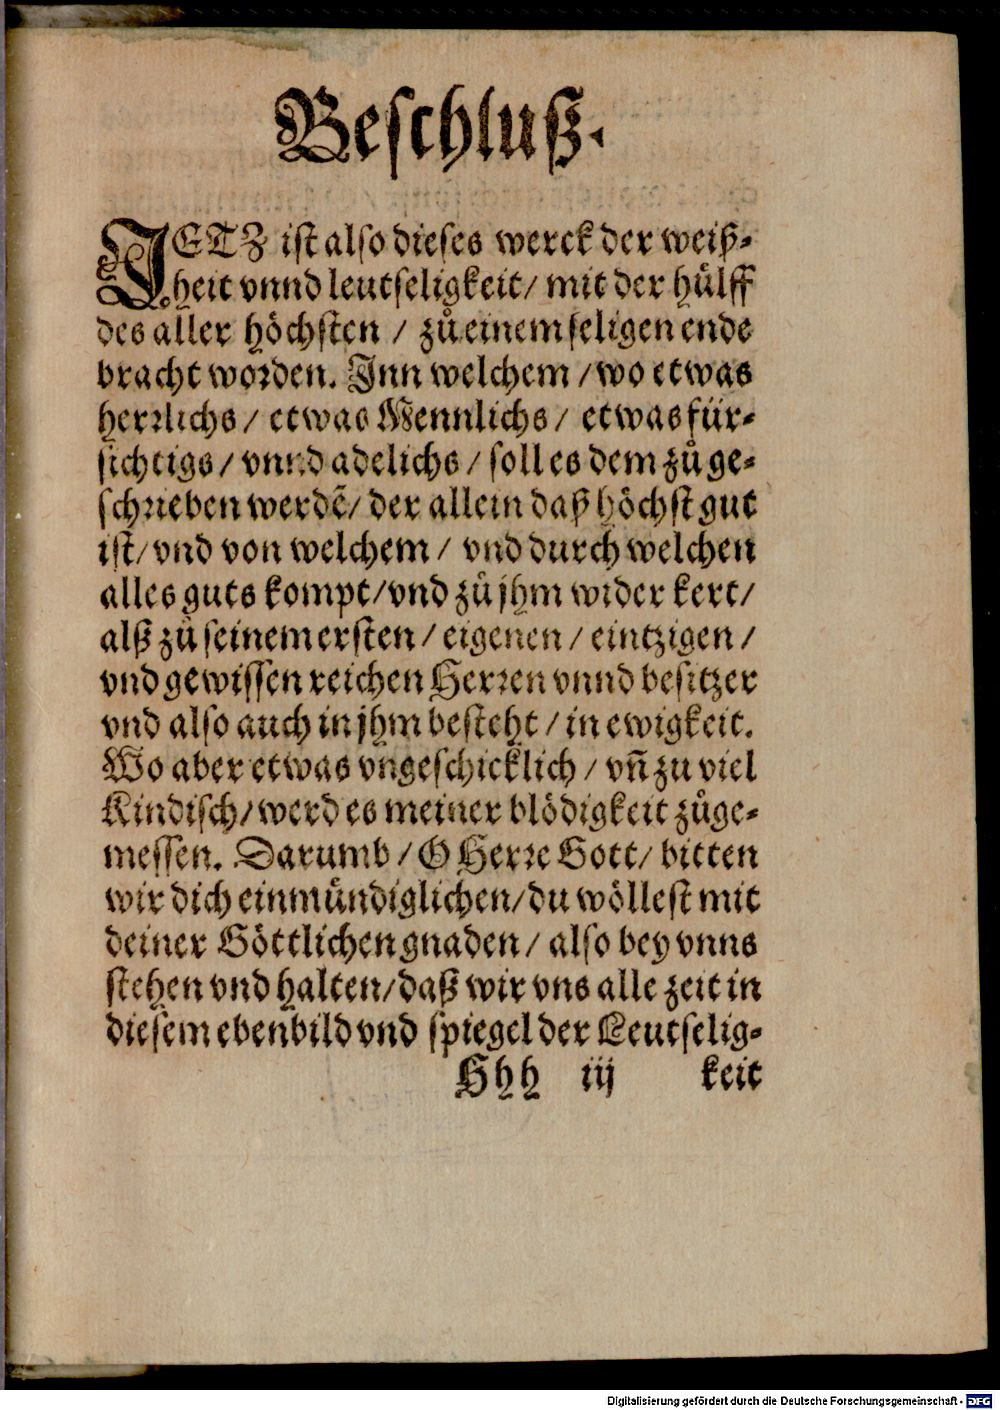 Beschluß.
JETZ ist also dieses werck der weiß-
heit vnnd leutseligkeit/ mit der hülff
des aller höchsten / zů einem seligen ende
bracht worden. Inn welchem / wo etwas
herrlichs / etwas Mennlichs / etwas für-
sichtigs / vnnd adelichs / soll es dem zů ge-
schrieben werdẽ/ der allein daß höchst gut
ist/ vnd von welchem / vnd durch welchen
alles guts kompt/ vnd zů jhm wider kert/
alß zů seinem ersten / eigenen / eintzigen /
vnd gewissen reichen Herren vnnd besitzer
vnd also auch in jhm besteht / in ewigkeit.
Wo aber etwas vngeschicklich / vñ zu viel
Kindisch/ werd es meiner blödigkeit zůge-
messen. Darumb / O Herre Gott/ bitten
wir dich einmündiglichen/ du wöllest mit
deiner Göttlichen gnaden / also bey vnns
stehen vnd halten/ daß wir vns alle zeit in
diesem ebenbild vnd spiegel der Leutselig-
Hhh iij keit
Digitalisierung gefördert durch die Deutsche Forschungsgemeinschaft - DFG